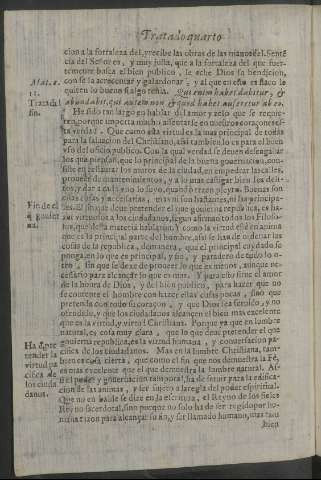 Tratado quarto
cion a la fortaleza del, y recibe las obras de las manos del. Sentẽ
cia del Señor es, y muy justa, que a la fortaleza del que fuer-
temente busca el bien publico, le eche Dios su bendicion,
con se la acrecentar y galardonar, y al que en esto es flaco le
quiten lo bueno si algo tenia. Qui enim habet dabitur, &
abundabit, qui autem non & quod habet auferetur ab eo.
Mat.
Tratado
fin.
He sido tan largo en hablar del amor y zelo que se requie-
ren, porque importa mucho assentarse en nuestros coraçones es-
ta verdad. Que como esta virtud es la mas principal de todas
para la saluacion del Christiano, assi tambien lo es para el buen
vso del oficio publico. Con la qual verdad se deuen desengañar
los que piensan, que lo principal de la buena gouernacion, con-
siste en los muros de la ciudad, en empedrar las calles,
proueer de mantenimientos, y a lo mas castigar bien los deli-
tos, y dar a cada vno lo suyo, quando traen pleyto. Buenas son
estas cosas y necessarias, mas ni son bastantes, ni las principa-
les. El fin que deue pretender el que gouierna republica, es ha-
zer virtuosos a los ciudadanos, segun afirman todos los Filoso-
fos, que desta materia hablaron. Y como la virtud este en anima
que es la principal parte del hombre, assi se han de ordenar las
cosas de la republica, de manera, que el principal cuydado se
ponga en lo que es principal, y fin, y paradero de todo lo o-
tro, sin que se dexe de proueer lo que es menos, aunque ne-
cessario para alcançar lo que es mas. Y para esto sirue el amor
de la honra de Dios, y del bien publico, para hazer que no
se contente el hombre con hazer ellas cosas pocas, sino que
pretenda con todo su coraçon, que Dios sea seruido, y no
ofendido, y que los ciudadanos alcancen el bien mas excelente
que es la virtud, y viuir Christiano. Porque ya que en lumbre
natural, es cosa muy clara, que lo que deue pretender el que
gouierna republica, es la virtud humana, y conuersacion pa-
cifica de los ciudadanos. Mas en la lumbre Christiana, tam-
bien es cosa cierta, que como el fin que nos demuestra la Fè,
es mas excelente que el que demuestra la lumbre natural. As-
si el poder y gouernacion temporal, ha de seruir para la edifica-
cion de las animas, y ser sujeto a la regla del poder espiritual.
Que no en balde se dize en la escritura, el Reyno de los fieles
Reyno sacerdotal, sino porque no solo ha de ser regido por hu-
mana razon para alcançar su fin, y ser llamado humano, mas tam
bien
Fin de el
q̃ gouier
na.
Ha de pre
tender la
virtud pa
cifica de
los ciuda
danos.